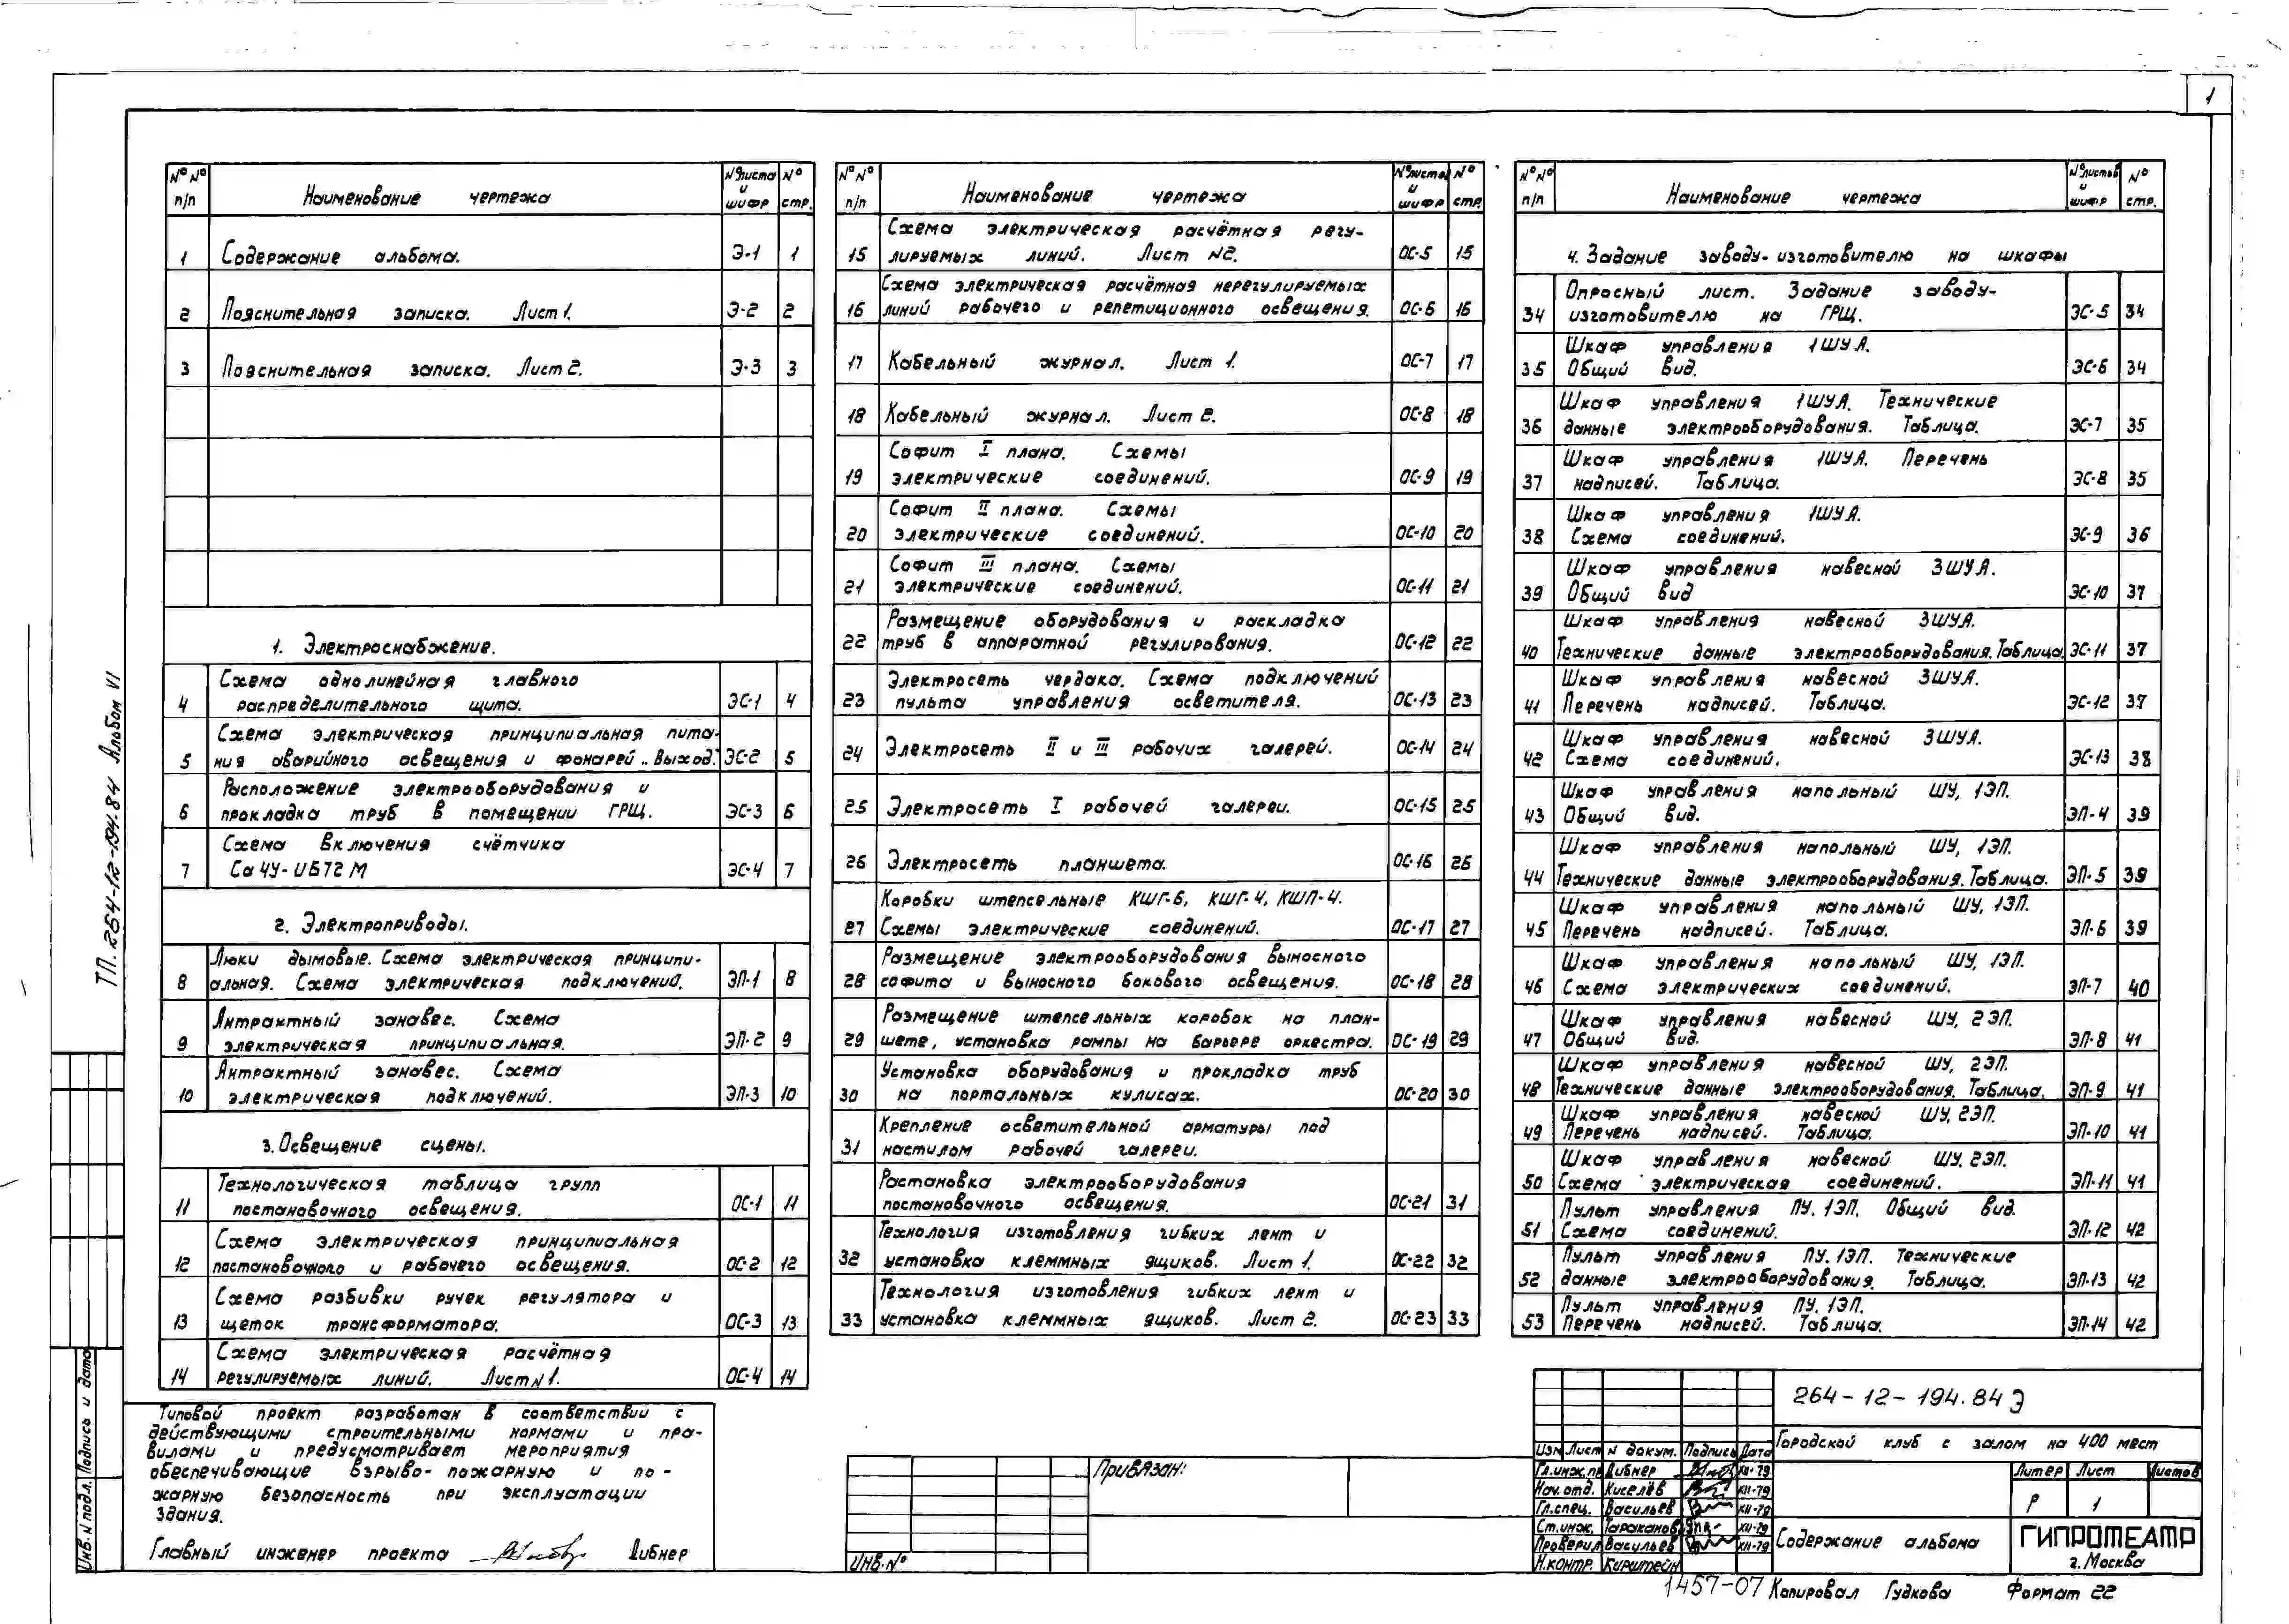 1
№№ п/п Наименование чертежа № листа и шифр № стр.
1 Содержание альбома. Э-1 1
2 Пояснительная записка. Лист 1. Э-2 2
3 Пояснительная записка. Лист 2. Э-3 3
1. Электроснабжение.
4 Схема однолинейная главного
распределительного щита. ЭС-1 4
5 Схема электрическая принципиальная пита-
ния аварийного освещения и фонарей „Выход". ЭС-2 5
6 Расположение электрооборудования и
прокладка труб в помещении ГРЩ. ЭС-3 6
7 Схема включения счётчика
Са4У-И672М ЭС-4 7
2. Электроприводы.
8 Люки дымовые. Схема электрическая принципи-
альная. Схема электрическая подключений. ЭП-1 8
9 Антрактный занавес. Схема
электрическая принципиальная. ЭП-2 9
10 Антрактный занавес. Схема
электрическая подключений. ЭП-3 10
3. Освещение сцены.
11 Технологическая таблица групп
постановочного освещения. ОС-1 11
12 Схема электрическая принципиальная
постановочного и рабочего освещения. ОС-2 12
13 Схема разбивки ручек регулятора и
щеток трансформатора. ОС-3 13
14 Схема электрическая расчётная
регулируемых линий. Лист №1. ОС-4 14
№№ п/п Наименование чертежа № листов и шифр № стр.
15 Схема электрическая расчётная регу-
лируемых линий. Лист №2. ОС-5 15
16 Схема электрическая расчётная нерегулируемых
линий рабочего и репетиционного освещения. ОС-6 16
17 Кабельный журнал. Лист 1. ОС-7 17
18 Кабельный журнал. Лист 2. ОС-8 18
19 Софит I плана. Схемы
электрические соединений. ОС-9 19
20 Софит II плана. Схемы
электрические соединений. ОС-10 20
21 Софит III плана. Схемы
электрические соединений. ОС-11 21
22 Размещение оборудования и раскладка
труб в аппаратной регулирования. ОС-12 22
23 Электросеть чердака. Схема подключений
пульта управления осветителя. ОС-13 23
24 Электросеть II и III рабочих галерей. ОС-14 24
25 Электросеть I рабочей галереи. ОС-15 25
26 Электросеть планшета. ОС-16 26
27 Коробки штепсельные КШГ-6, КШГ-4, КШП-4.
Схемы электрические соединений. ОС-17 27
28 Размещение электрооборудования выносного
софита и выносного бокового освещения. ОС-18 28
29 Размещение штепсельных коробок на план-
шете, установка рампы на барьере оркестра. ОС-19 29
30 Установка оборудования и прокладка труб
на портальных кулисах. ОС-20 30
31 Крепление осветительной арматуры под
настилом рабочей галереи.
Растановка электрооборудования
постановочного освещения. ОС-21 31
32 Технология изготовления гибких лент и
установка клеммных ящиков. Лист 1. ОС-22 32
33 Технология изготовления гибких лент и
установка клеммных ящиков. Лист 2. ОС-23 33
№№ п/п Наименование чертежа № листов и шифр № стр.
4. Задание заводу-изготовителю на шкафы
34 Опросный лист. Задание заводу-
изготовителю на ГРЩ. ЭС-5 34
35 Шкаф управления 1ШУА.
Общий вид. ЭС-6 34
36 Шкаф управления 1ШУА. Технические
данные электрооборудования. Таблица. ЭС-7 35
37 Шкаф управления 1ШУА. Перечень
надписей. Таблица. ЭС-8 35
38 Шкаф управления 1ШУА.
Схема соединений. ЭС-9 36
39 Шкаф управления навесной 3ШУА.
Общий вид ЭС-10 37
40 Шкаф управления навесной 3ШУА.
Технические данные электрооборудования. Таблица. ЭС-11 37
41 Шкаф управления навесной 3ШУА.
Перечень надписей. Таблица. ЭС-12 37
42 Шкаф управления навесной 3ШУА.
Схема соединений. ЭС-13 38
43 Шкаф управления напольный ШУ, 1ЭП.
Общий вид. ЭП-4 39
44 Шкаф управления напольный ШУ, 1ЭП.
Технические данные электрооборудования. Таблица. ЭП-5 39
45 Шкаф управления напольный ШУ, 1ЭП.
Перечень надписей. Таблица. ЭП-6 39
46 Шкаф управления напольный ШУ, 1ЭП.
Схема электрических соединений. ЭП-7 40
47 Шкаф управления навесной ШУ, 2ЭП.
Общий вид. ЭП-8 41
48 Шкаф управления навесной ШУ, 2ЭП.
Технические данные электрооборудования. Таблица. ЭП-9 41
49 Шкаф управления навесной ШУ, 2ЭП.
Перечень надписей. Таблица. ЭП-10 41
50 Шкаф управления навесной ШУ. 2ЭП.
Схема электрическая соединений. ЭП-11 41
51 Пульт управления ПУ. 1ЭП. Общий вид.
Схема соединений. ЭП-12 42
52 Пульт управления ПУ. 1ЭП. Технические
данные электрооборудования. Таблица. ЭП-13 42
53 Пульт управления ПУ. 1ЭП.
Перечень надписей. Таблица. ЭП-14 42
ТП. 264-12-194.84 Альбом VI
Подпись и дата
Инв. N подл.
Типовой проект разработан в соответствии с
действующими строительными нормами и пра-
вилами и предусматривает мероприятия
обеспечивающие взрыво-пожарную и по-
жарную безопасность при эксплуатации
здания.
Главный инженер проекта Дибнер
Привязан:
Инв. №
264-12-194.84 Э
Городской клуб с залом на 400 мест
Изм Лист N докум. Подпись Дата
Гл.инж.пр Дибнер XII-79
Нач.отд. Киселёв XII-79
Гл.спец. Васильев XII-79
Ст.инж. Тараканова XII-79
Проверил Васильев XII-79
Н.контр. Кирштейн
Литер Лист Листов
Р 1
Содержание альбома
ГИПРОТЕАТР
г. Москва
1457-07 Копировал Гудкова Формат 22